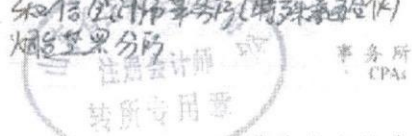 和信会计师事务所(特殊普通合伙)
烟台芝罘分所
注册会计师
转所专用章
事务所
CPAs